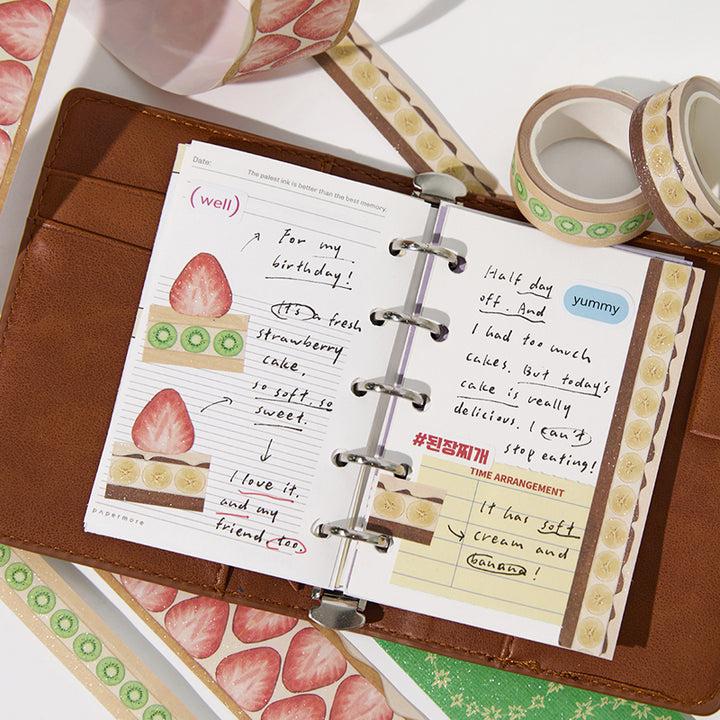 Date:
The palest ink is better than the best memory.
(well)
For my
birthday!
It's a fresh
strawberry
cake.
so soft, so
sweet.
I love it.
and my
friend too.
papermore
Half day
off. And
yummy
I had too much
cakes. But today's
cake is really
delicious. I can't
stop eating!
#된장찌개
TIME ARRANGEMENT
It has soft
cream and
banana!